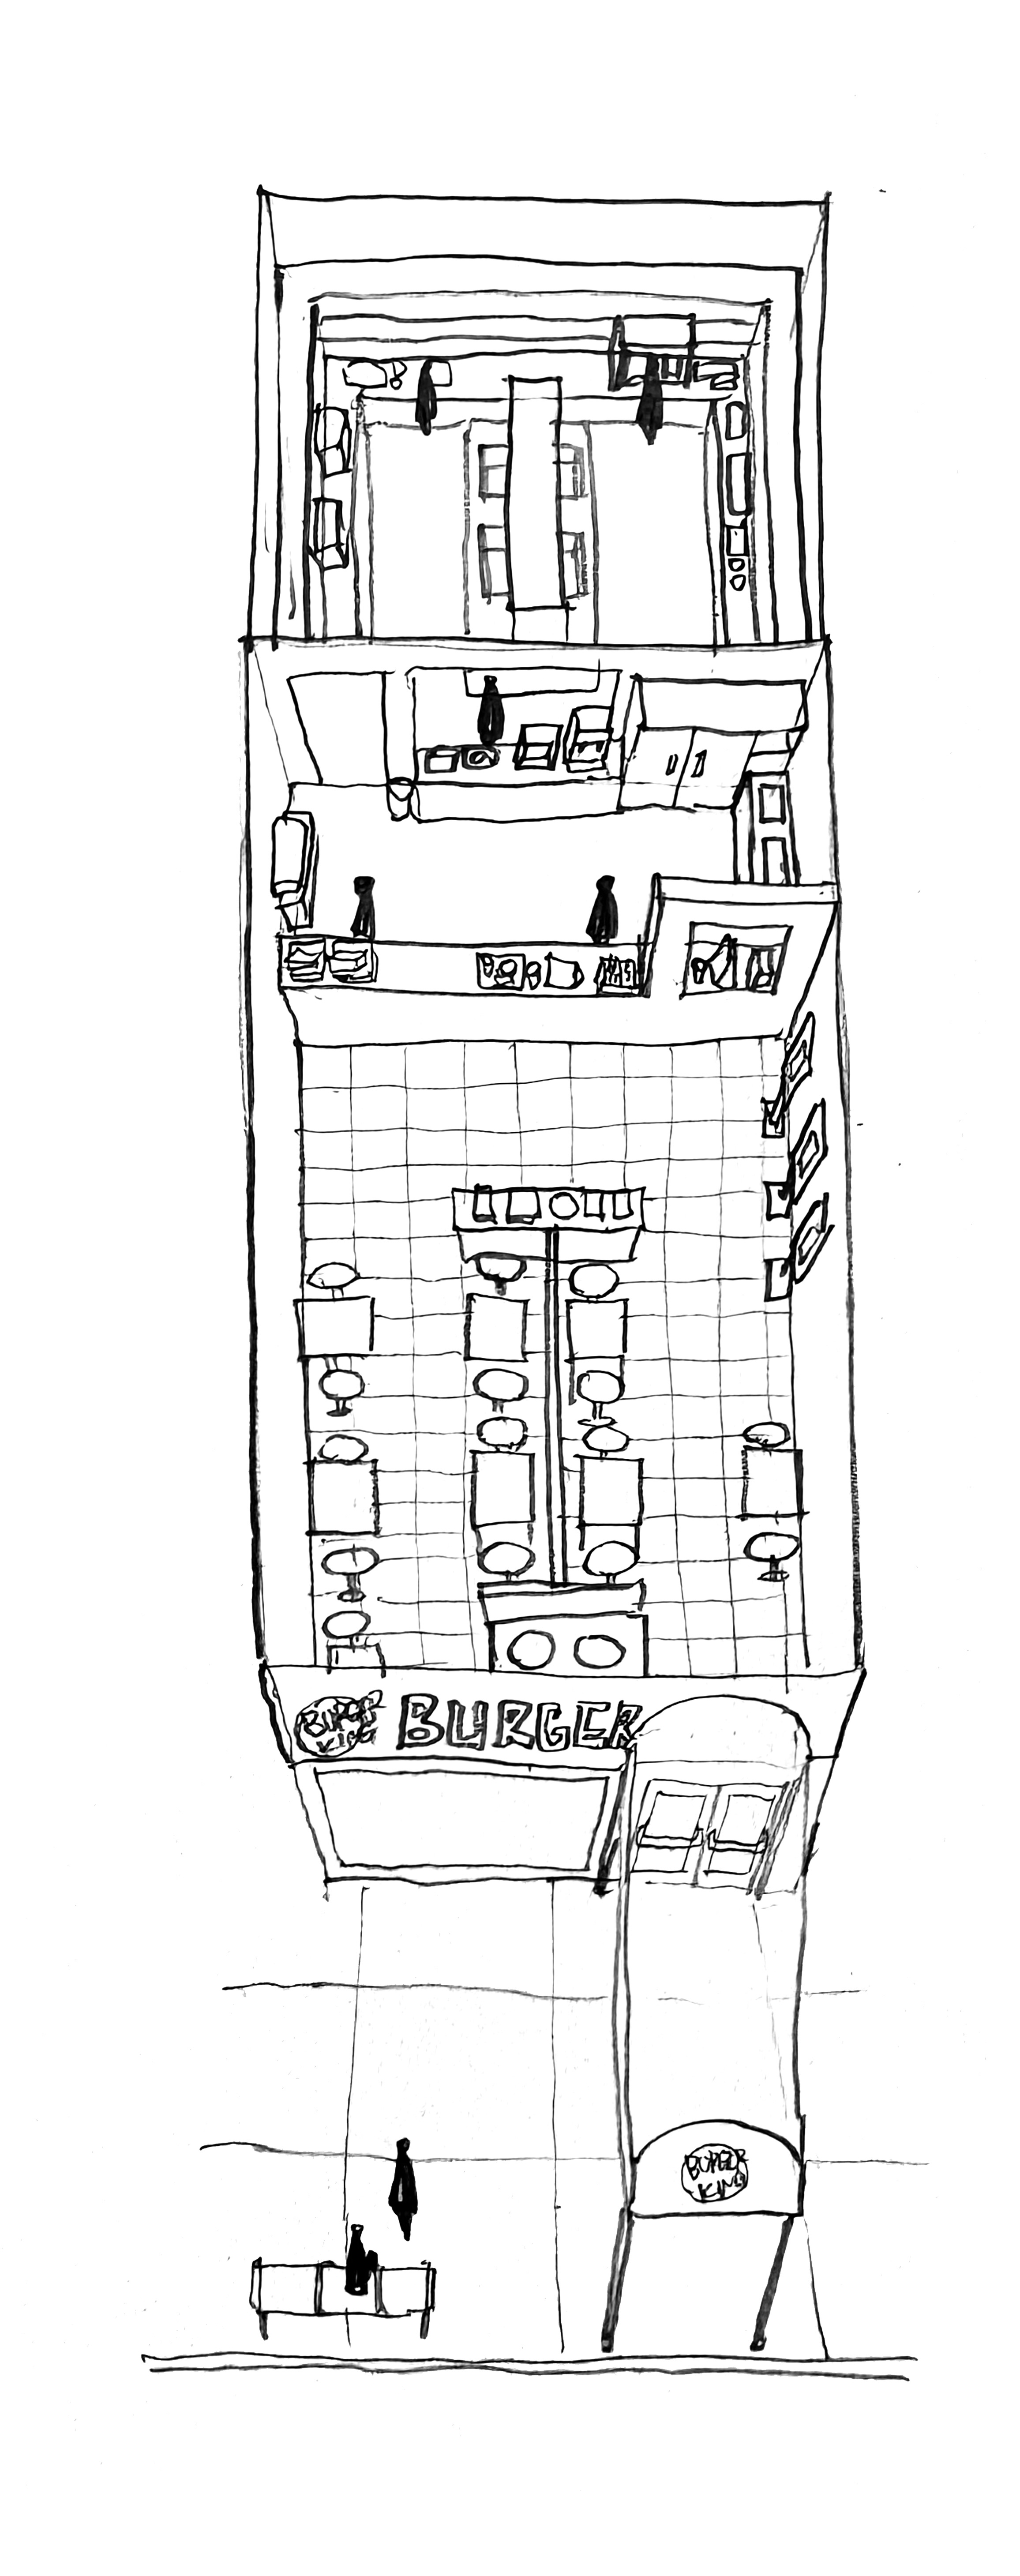 BURGER
KING
BURGER
BURGER
KING